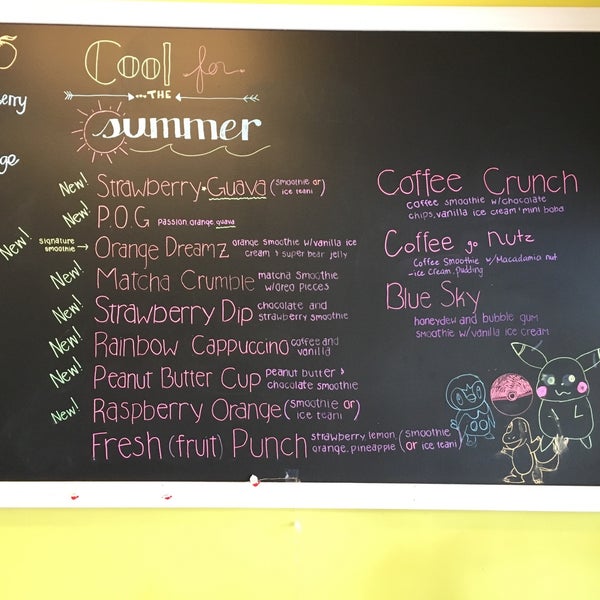 erry
ge
Cool for
...THE
summer
New! Strawberry•Guava (smoothie or)
ice teani)
New! P.O.G passion, orange, guava
New! signature
smoothie → Orange Dreamz orange smoothie w/vanilla ice
cream & super bear jelly
New! Matcha Crumble matcha smoothie
w/oreo pieces
New! Strawberry Dip chocolate and
strawberry smoothie
New! Rainbow Cappuccino coffee and
vanilla
New! Peanut Butter Cup peanut butter &
chocolate smoothie
New! Raspberry Orange (smoothie or)
ice teani)
Fresh (fruit) Punch strawberry, lemon, (smoothie
orange, pineapple or ice teani)
Coffee Crunch
coffee smoothie w/chocolate
chips, vanilla ice cream & mini boba
Coffee go nutz
Coffee Smoothie w/Macadamia nut
-ice cream, pudding
Blue Sky
honeydew and bubble gum
smoothie w/vanilla ice cream